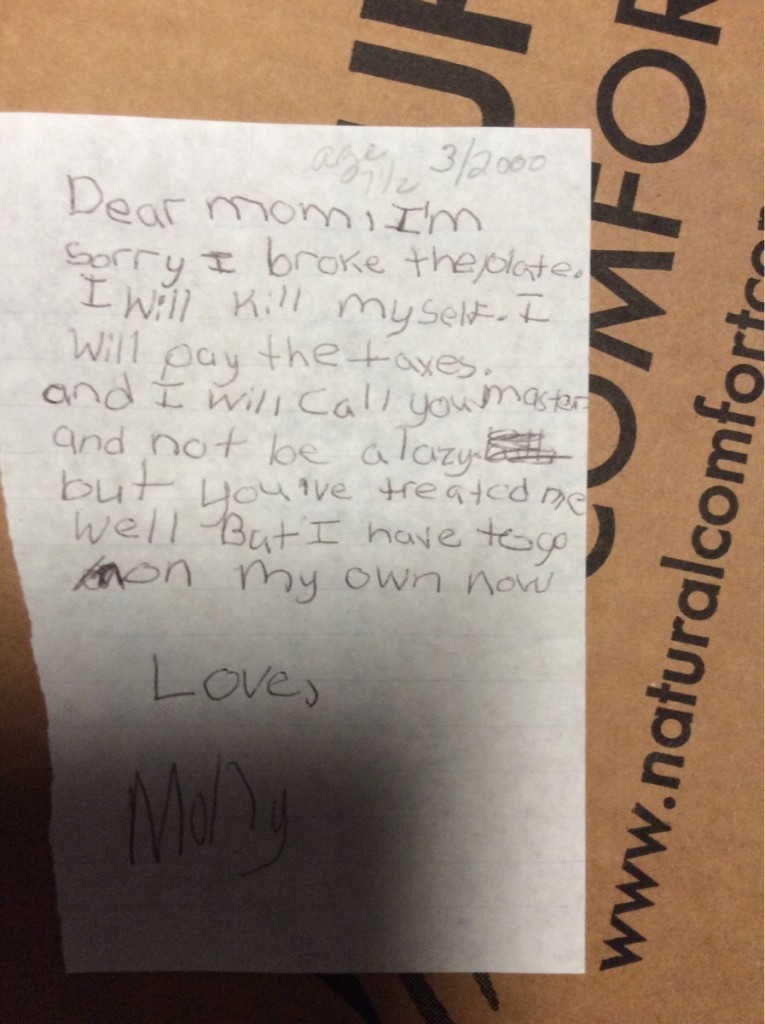 age 7 1/2 3/2000
Dear mom, I'm
sorry I broke the plate.
I will kill myself. I
will pay the taxes.
and I will call you master
and not be a lazy
but you'ive treated me
well But I have to go
on my own now
Love,
Molly
COMFOR
www.naturalcomfortco